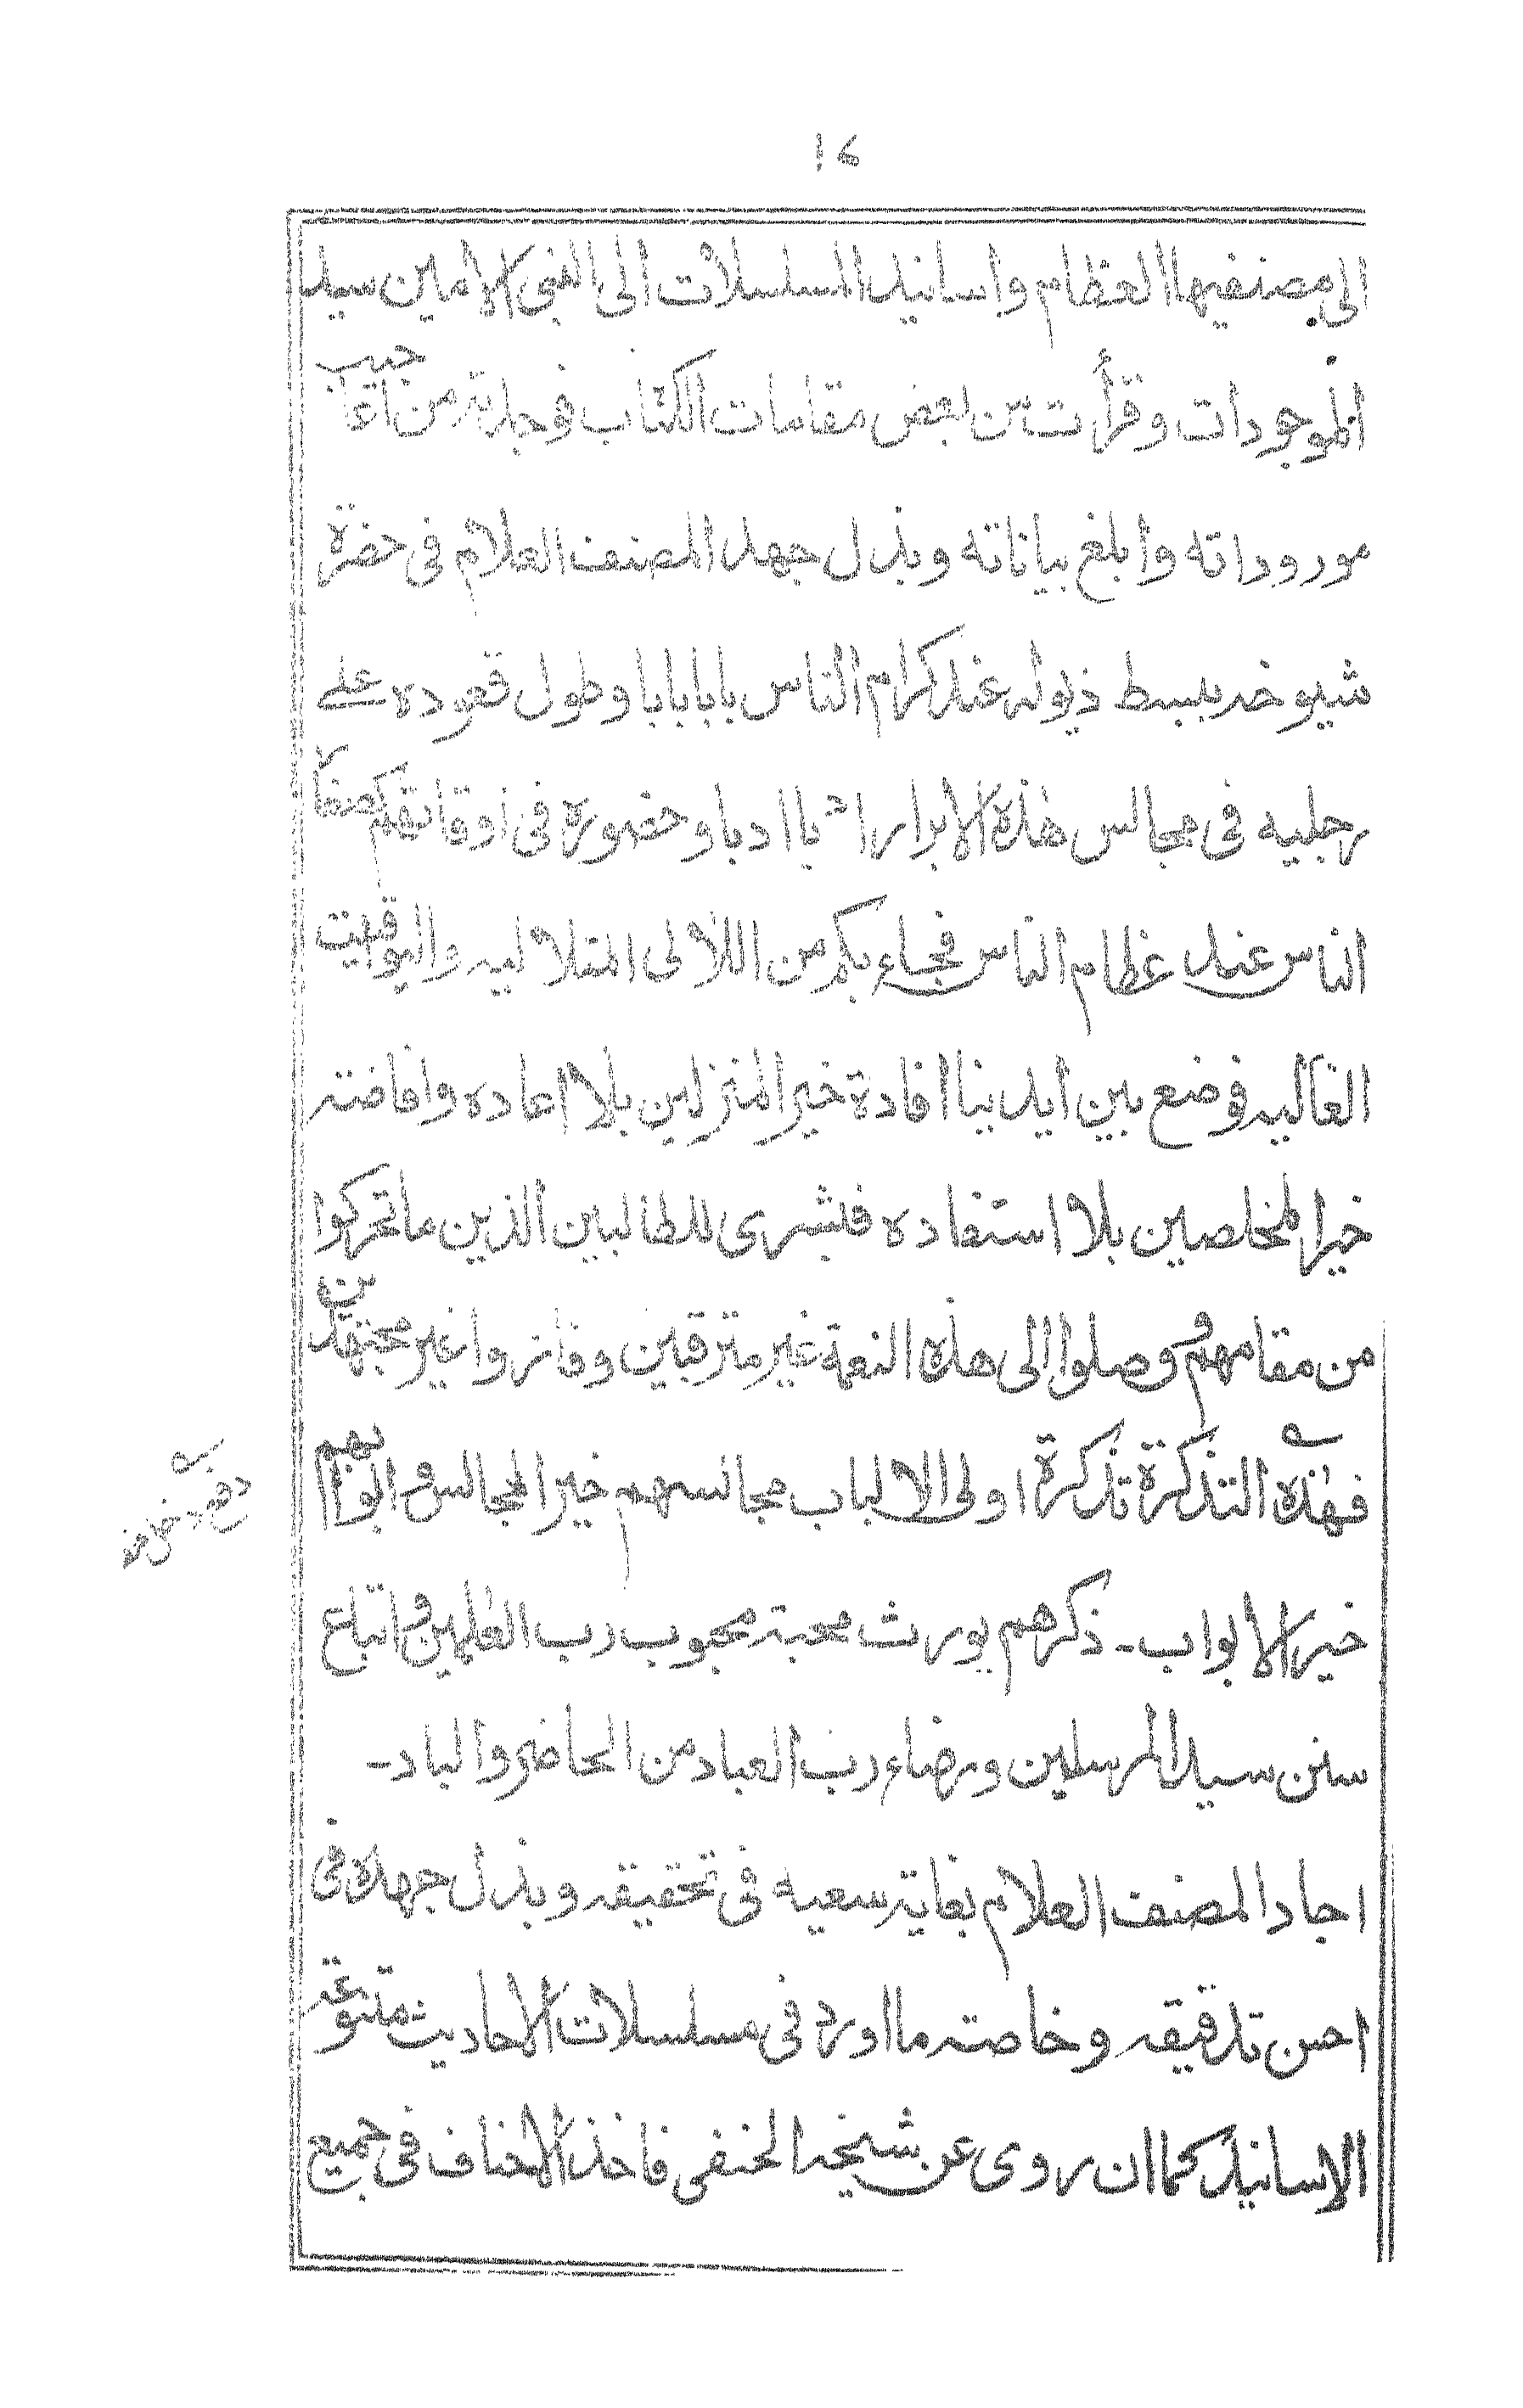 الى مصنفيها العظام واسانيد المسلسلات الى النبى الامين سيد
الموجودات وقرأت من بعض مقامات الكتاب فوجدته من اعاجيب
موروداته وابلغ بياناته وبذل جهد المصنف العلام فى حضرة
شيوخه ببسط ذيوله عند كرام الناس بابا بابا وطول قعوده على
رجليه فى مجالس هذه الابرار ادبا وحضوره فى اوقاتهم كصغار
الناس عند عظام الناس فجاء بكم من اللألى المتلاليه واليواقيت
الغاليه فوضع بين ايدينا افادة خير المنزلين بلا اعاده وافاضته
خير المخلصين بلا استفاده فبشرى للطالبين الذين ما تحركوا
من مقامهم ووصلوا الى هذه النعمة غير مترقبين وفازوا غير مجتهدين
فهذه التذكرة تذكرة اولى الالباب مجالسهم خير المجالس وابوابهم
خير الابواب۔ ذكرهم يورث محبة محبوب رب العلمين واتباع
سنن سيد المرسلين ورضاء رب العباد من الحاضر والباد۔
اجاد المصنف العلام بغاية سعيه فى تحقيقه وبذل جهده فى
احسن تدقيقه وخاصته ما اورد فى مسلسلات الاحاديث متنوعة
الاسانيد كما ان روى عن شيخه الحنفى فاخذ الاحناف فى جميع